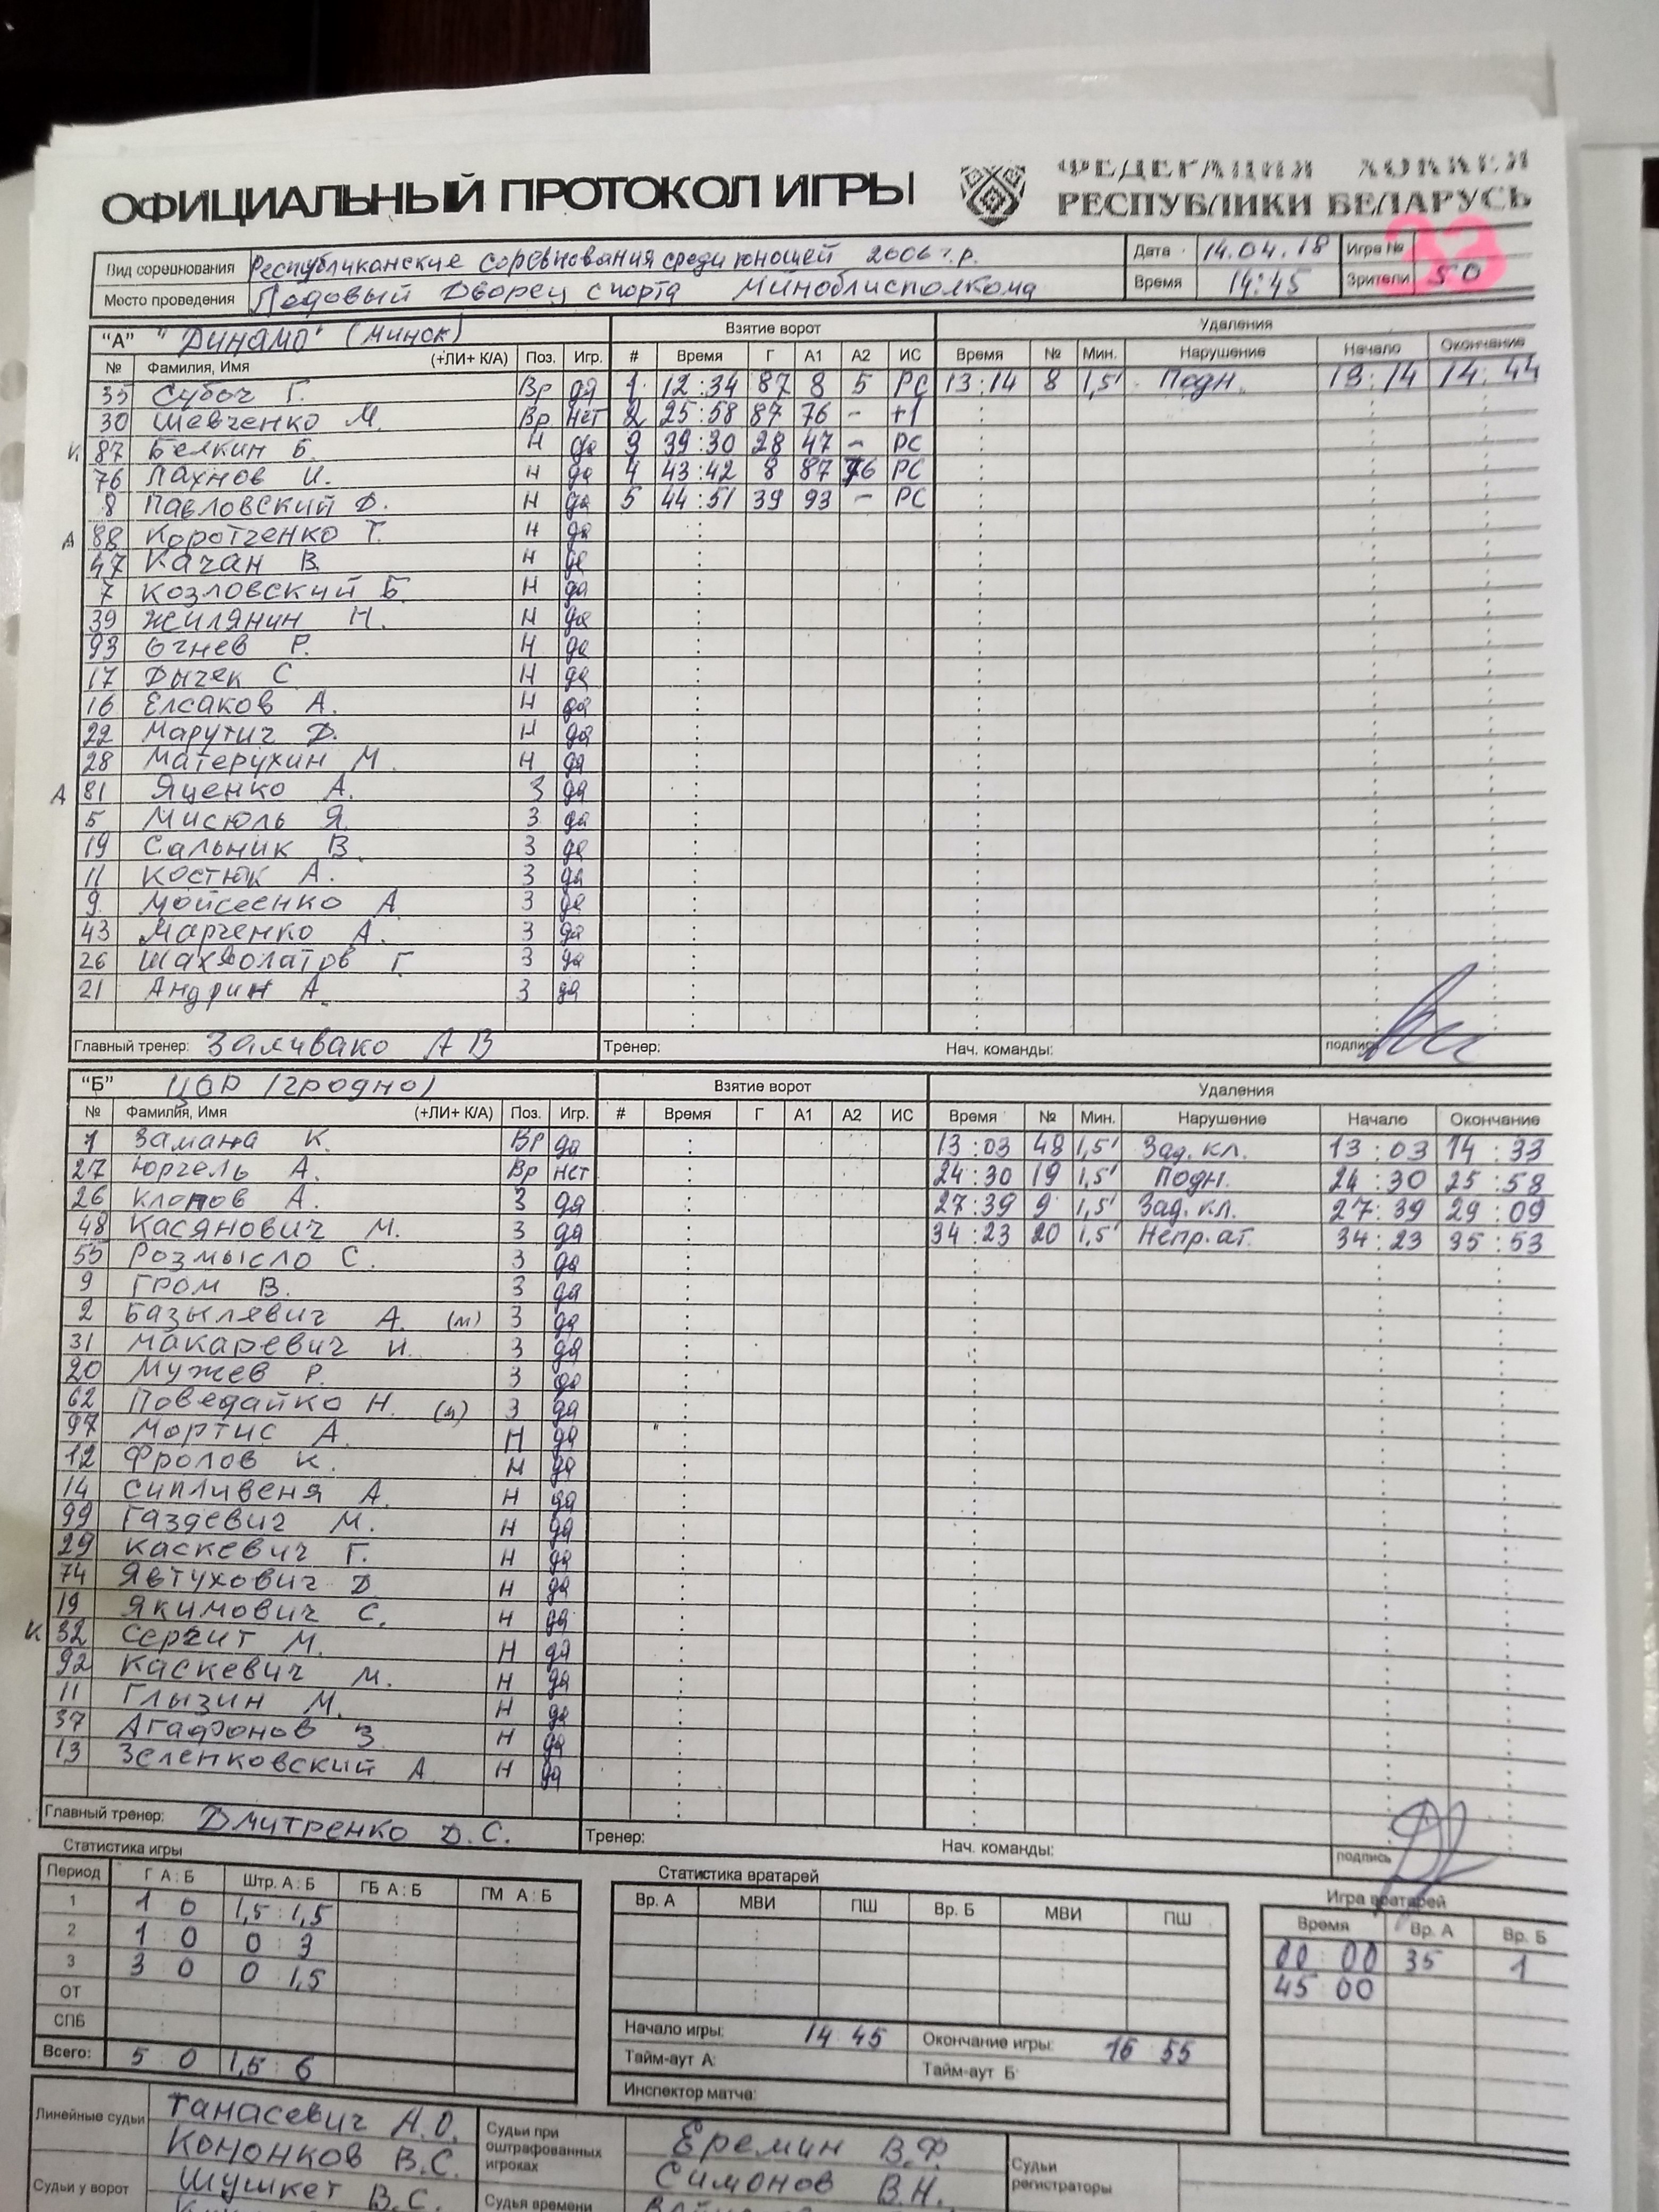 ОФИЦИАЛЬНЫЙ ПРОТОКОЛ ИГРЫ
ФЕДЕРАЦИЯ ХОККЕЯ
РЕСПУБЛИКИ БЕЛАРУСЬ
Вид соревнования Республиканские соревнования среди юношей 2006 г.р. Дата 14.04.18 Игра № 33
Место проведения Ледовый Дворец спорта Миноблисполкома Время 14:45 Зрители 50
"А" "Динамо" (Минск) Взятие ворот Удаления
№ Фамилия, Имя (+ЛИ+ К/А) Поз. Игр. # Время Г А1 А2 ИС Время № Мин. Нарушение Начало Окончание
35 Субоч Г. Вр да 1 12:34 87 8 5 РС 13:14 8 1,5' Подн. 13:14 14:44
30 Шевченко М. Вр нет 2 25:58 87 76 - +1
К 87 Белкин Б. Н да 3 39:30 28 47 - РС
76 Лахнов И. Н да 4 43:42 8 87 76 РС
8 Павловский Д. Н да 5 44:51 39 93 - РС
А 88 Коротченко Т. Н да
47 Качан В. Н да
7 Козловский Б. Н да
39 Жилянин Н. Н да
93 Огнев Р. Н да
17 Дычек С Н да
16 Елсаков А. Н да
22 Марутич Д. Н да
28 Матерухин М. Н да
А 81 Яценко А. З да
5 Мисюль Я. З да
19 Сальник В. З да
11 Костюк А. З да
9 Мойсеенко А З да
43 Марченко А. З да
26 Шахволатов Г. З да
21 Андрин А. З да
Главный тренер: Заливако А В Тренер: Нач. команды: подпись
"Б" ЦОР (Гродно) Взятие ворот Удаления
№ Фамилия, Имя (+ЛИ+ К/А) Поз. Игр. # Время Г А1 А2 ИС Время № Мин. Нарушение Начало Окончание
1 Замана К. Вр да 13:03 48 1,5' Зад. кл. 13:03 14:33
27 Юргель А. Вр нет 24:30 19 1,5' Подн. 24:30 25:58
26 Клопов А. З да 27:39 9 1,5' Зад. кл. 27:39 29:09
48 Касянович М. З да 34:23 20 1,5' Непр. ат. 34:23 35:53
55 Розмысло С. З да
9 Гром В. З да
2 Базылевич А. (м) З да
31 Макаревич И. З да
20 Мужев Р. З да
62 Поведайко Н. (м) З да
97 Мортис А. Н да
12 Фролов К. Н да
14 Сипливеня А. Н да
99 Газдевич М. Н да
29 Каскевич Г. Н да
74 Явтухович Д Н да
19 Якимович С. Н да
К 32 Сергит М. Н да
92 Каскевич М. Н да
11 Глызин М. Н да
37 Агафонов З Н да
13 Зеленковский А Н да
Главный тренер: Дмитренко Д.С. Тренер: Нач. команды: подпись
Статистика игры Статистика вратарей Игра вратарей
Период Г А : Б Штр. А : Б ГБ А : Б ГМ А : Б Вр. А МВИ ПШ Вр. Б МВИ ПШ Время Вр. А Вр. Б
1 1 0 1,5 : 1,5 00 00 35 1
2 1 0 0 : 3 45 00
3 3 0 0 1,5
ОТ
СПБ
Всего: 5 : 0 1,5 : 6
Начало игры: 14 45 Окончание игры: 16 55
Тайм-аут А: Тайм-аут Б:
Инспектор матча:
Линейные судьи Танасевич А.О. Судьи при оштрафованных игроках Еремин В.Ф. Судьи регистраторы
Кононков В.С. Симонов В.Н.
Судьи у ворот Шушкет В.С. Судья времени